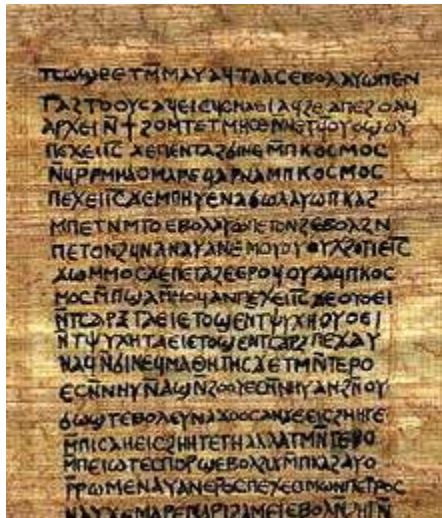 ⲡⲥⲱϣⲉⲉⲧⲙ̅ⲙⲁⲩⲁϥⲧⲁⲁⲥⲉⲃⲟⲗⲁⲩⲱⲡⲉⲛ
ⲧⲁϩⲧⲟⲟⲩⲥⲁϥⲉⲓⲉϥⲥⲕⲁⲉⲓⲁϥϩⲉⲁⲡⲉϩⲟⲁϥ
ⲁⲣⲭⲉⲓⲛ̅ϯϩⲟⲙⲧⲉⲧⲙⲏⲥⲉⲛ̅ⲛⲉⲧϥⲟⲩⲟϣⲟⲩ
ⲡⲉϫⲉⲓ̅ⲥ̅ϫⲉⲡⲉⲛⲧⲁϩϭⲓⲛⲉⲙ̅ⲡⲕⲟⲥⲙⲟⲥ
ⲛϥⲣ̅ⲣⲙ̅ⲙⲁⲟⲙⲁⲣⲉϥⲁⲣⲛⲁⲙⲡⲕⲟⲥⲙⲟⲥ
ⲡⲉϫⲉⲓ̅ⲥ̅ϫⲉⲙⲡⲏⲩⲉⲛⲁϭⲱⲗⲁⲩⲱⲡⲕⲁϩ
ⲙⲡⲉⲧⲛⲙⲧⲟⲉⲃⲟⲗⲁⲩⲱⲡⲉⲧⲟⲛϩⲉⲃⲟⲗϩⲛ
ⲡⲉⲧⲟⲛϩϥⲛⲁⲛⲁⲩⲁⲛⲉⲙⲟⲩⲟⲩⲭϩⲟⲧⲓⲉⲓ̅ⲥ̅
ϫⲱⲙⲙⲟⲥϫⲉⲡⲉⲧⲁϩⲉⲉⲣⲟϥⲟⲩⲁⲁϥⲡⲕⲟⲥ
ⲙⲟⲥⲙ̅ⲡϣⲁⲙ̅ⲙⲟϥⲁⲛⲡⲉϫⲉⲓ̅ⲥ̅ϫⲉⲟⲩⲟⲉⲓ
ⲛ̅ⲧⲥⲁⲣⲝⲧⲁⲉⲓⲉⲧⲟϣⲉⲛⲧⲯⲩⲭⲏⲟⲩⲟⲉⲓ
ⲛ̅ⲧⲯⲩⲭⲏⲧⲁⲉⲓⲉⲧⲟϣⲉⲛⲧⲥⲁⲣⲝⲡⲉϫⲁⲩ
ⲛⲁϥⲛ̅ϭⲓⲛⲉϥⲙⲁⲑⲏⲧⲏⲥϫⲉⲧⲙⲛ̅ⲧⲉⲣⲟ
ⲉⲥⲛ̅ⲛⲏⲩⲛ̅ⲁϣⲛϩⲟⲟⲩⲉⲥⲛ̅ⲛⲏⲩⲁⲛϩⲛ̅ⲟⲩ
ϭⲱϣⲧⲉⲃⲟⲗⲉⲩⲛⲁϫⲟⲟⲥⲁⲛϫⲉⲉⲓⲥϩⲏⲏⲧⲉ
ⲙ̅ⲡⲓⲥⲁⲏⲉⲓⲥϩⲏⲏⲧⲉⲧⲏⲁⲗⲗⲁⲧⲙⲛ̅ⲧⲉⲣⲟ
ⲙ̅ⲡⲉⲓⲱⲧⲉⲥⲡⲟⲣϣⲉⲃⲟⲗϩⲓϫⲙ̅ⲡⲕⲁϩⲁⲩⲱ
ⲣ̅ⲣⲱⲙⲉⲛⲁⲩⲁⲛⲉⲣⲟⲥⲡⲉϫⲉⲥⲓⲙⲱⲛⲡⲉⲧⲣⲟⲥ
ⲛⲁⲩϫⲉⲙⲁⲣⲉⲙⲁⲣⲓϩⲁⲙⲉⲓⲉⲃⲟⲗⲛ̅ϩⲏⲧⲛ̅